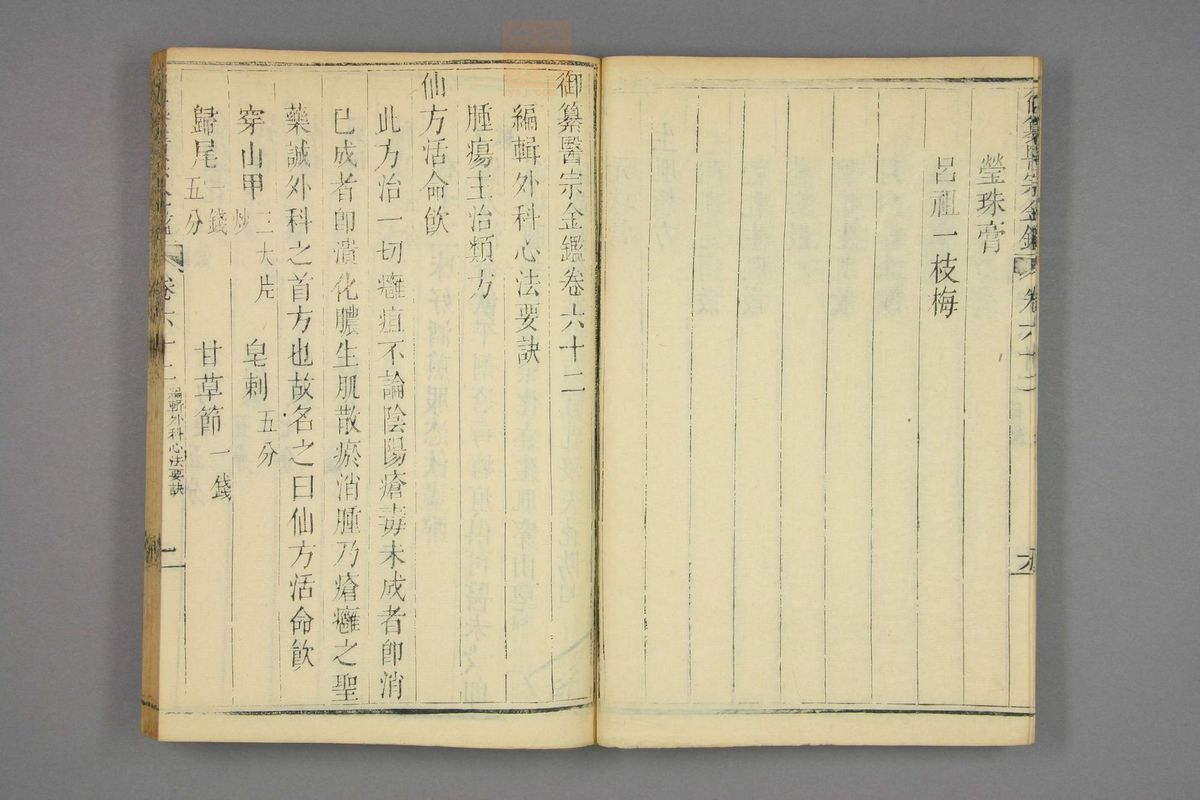 御纂醫宗金鑑 卷六十二
瑩珠膏
呂祖一枝梅
御纂醫宗金鑑卷六十二
編輯外科心法要訣
腫瘍主治類方
仙方活命飲
此方治一切癰疽不論陰陽瘡毒未成者卽消
已成者卽潰化膿生肌散瘀消腫乃瘡癰之聖
藥誠外科之首方也故名之曰仙方活命飮
穿山甲 三大片 炒 皂刺 五分
歸尾 錢五分 甘草節 一錢
卷六十二 編輯外科心法要訣 一